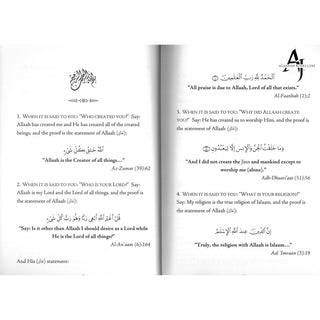 1. WHEN IT IS SAID TO YOU: "WHO CREATED YOU?" Say:
Allaah has created me and He has created all of the created
beings, and the proof is the statement of Allaah (ﷻ):
ٱللَّهُ خَـٰلِقُ كُلِّ شَىْءٍ
"Allaah is the Creator of all things...."
Az-Zumar (39):62
2. WHEN IT IS SAID TO YOU: "WHO IS YOUR LORD?" Say:
Allaah is my Lord and the Lord of all things, and the proof
is the statement of Allaah (ﷻ):
قُلْ أَغَيْرَ ٱللَّهِ أَبْغِى رَبًّا وَهُوَ رَبُّ كُلِّ شَىْءٍ
"Say: Is it other than Allaah I should desire as a Lord while
He is the Lord of all things?"
Al-An'aam (6):164
And His (ﷻ) statement:
ٱلْحَمْدُ لِلَّهِ رَبِّ ٱلْعَـٰلَمِينَ
"All praise is due to Allaah, Lord of all that exists."
Al-Faatihah (1):2
3. WHEN IT IS SAID TO YOU: "WHY DID ALLAAH CREATE
YOU?" Say: He has created us to worship Him, and the proof
is the statement of Allaah (ﷻ):
وَمَا خَلَقْتُ ٱلْجِنَّ وَٱلْإِنسَ إِلَّا لِيَعْبُدُونِ
"And I did not create the Jinn and mankind except to
worship me (alone)."
Adh-Dhaariyaat (51):56
4. WHEN IT IS SAID TO YOU: "WHAT IS YOUR RELIGION?"
Say: My religion is the true religion of Islaam, and the proof
is the statement of Allaah (ﷻ):
إِنَّ ٱلدِّينَ عِندَ ٱللَّهِ ٱلْإِسْلَـٰمُ
"Truly, the religion with Allaah is Islaam...."
Aal 'Imraan (3):19